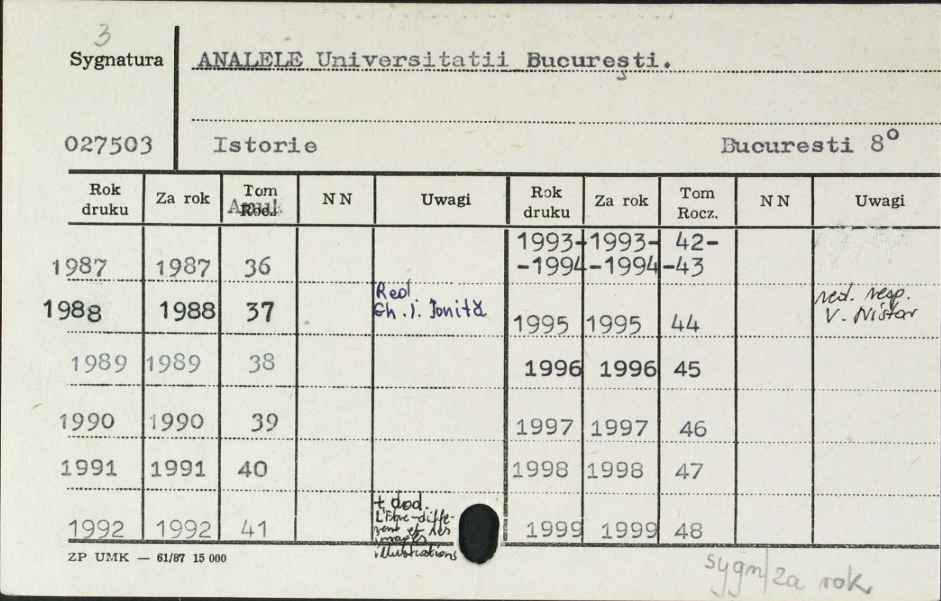 3
Sygnatura ANALELE Universitatii Bucureşti.
027503 Istorie Bucuresti 8°
Rok druku Za rok Tom Rocz. N N Uwagi Rok druku Za rok Tom Rocz. N N Uwagi
1993- 1993- 42-
1987 1987 36 -1994 -1994 -43
1988 1988 37 Red. Gh. I. Ioniţă
1995 1995 44 red. resp. V. Nistor
1989 1989 38 1996 1996 45
1990 1990 39 1997 1997 46
1991 1991 40 1998 1998 47
+ dod.
et ses
images
illustrations
1992 1992 41 1999 1999 48
ZP UMK — 61/87 15 000
sygn/za rok